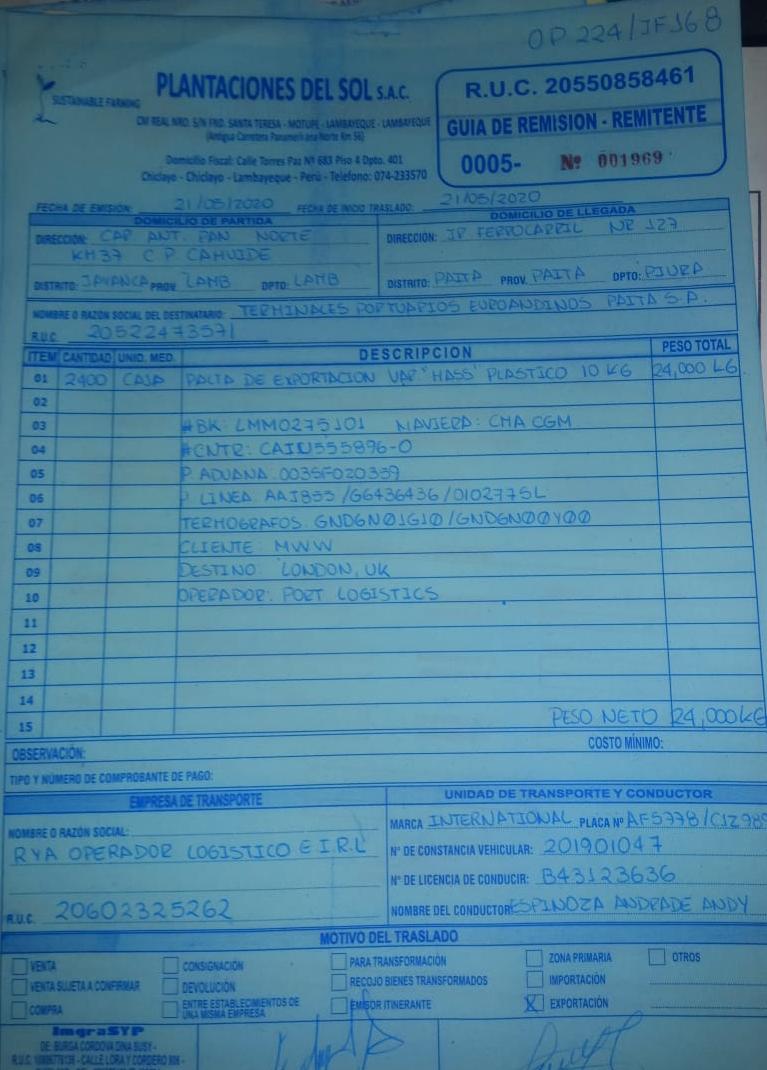 OP 224/JF168
SUSTAINABLE FARMING
PLANTACIONES DEL SOL S.A.C.
CM REAL NRO. S/N FND. SANTA TERESA - MOTUPE - LAMBAYEQUE - LAMBAYEQUE
(Antigua Carretera Panamericana Norte Km 56)
Domicilio Fiscal: Calle Torres Paz Nº 683 Piso 4 Dpto. 401
Chiclayo - Chiclayo - Lambayeque - Perú - Telefono: 074-233570
R.U.C. 20550858461
GUIA DE REMISION - REMITENTE
0005- Nº 001969
FECHA DE EMISIÓN: 21/05/2020 FECHA DE INICIO TRASLADO: 21/05/2020
DOMICILIO DE PARTIDA
DIRECCIÓN: CAR ANT. PAN NORTE
KM37 C P CAHUIDE
DISTRITO: JAYANCA PROV. LAMB DPTO: LAMB
DOMICILIO DE LLEGADA
DIRECCIÓN: JR FERROCARRIL NR 127
DISTRITO: PAITA PROV. PAITA DPTO: PIURA
NOMBRE O RAZÓN SOCIAL DEL DESTINATARIO: TERMINALES PORTUARIOS EUROANDINOS PAITA S.A.
R.U.C. 20522473571
ITEM CANTIDAD UNID. MED. DESCRIPCION PESO TOTAL
01 2400 CAJA PALTA DE EXPORTACION VAR "HASS" PLASTICO 10 KG 24,000 KG
02
03 #BK: LMM0275101 NAVIERA: CMA CGM
04 #CNTR: CAIU555896-0
05 P ADUANA: 0035F020339
06 P LINEA AAJ855/GG436436/0102775L
07 TERMOGRAFOS GNDGN01G10/GNDGN00Y00
08 CLIENTE: MWW
09 DESTINO: LONDON, UK
10 OPERADOR: PORT LOGISTICS
11
12
13
14
15 PESO NETO 24,000KG
OBSERVACIÓN: COSTO MÍNIMO:
TIPO Y NÚMERO DE COMPROBANTE DE PAGO:
EMPRESA DE TRANSPORTE
NOMBRE O RAZÓN SOCIAL:
RYA OPERADOR LOGISTICO E I.R.L
R.U.C. 20602325262
UNIDAD DE TRANSPORTE Y CONDUCTOR
MARCA INTERNATIONAL PLACA Nº AF5778/C1Z989
N° DE CONSTANCIA VEHICULAR: 201901047
N° DE LICENCIA DE CONDUCIR: B43123636
NOMBRE DEL CONDUCTOR: ESPINOZA ANDRADE ANDY
MOTIVO DEL TRASLADO
VENTA CONSIGNACIÓN PARA TRANSFORMACIÓN ZONA PRIMARIA OTROS
VENTA SUJETA A CONFIRMAR DEVOLUCIÓN RECOJO BIENES TRANSFORMADOS IMPORTACIÓN
COMPRA ENTRE ESTABLECIMIENTOS DE UNA MISMA EMPRESA EMISOR ITINERANTE X EXPORTACIÓN
ImgraSYP
DE: BURGA CORDOVA DINA SUSY -
CALLE LORA Y CORDERO